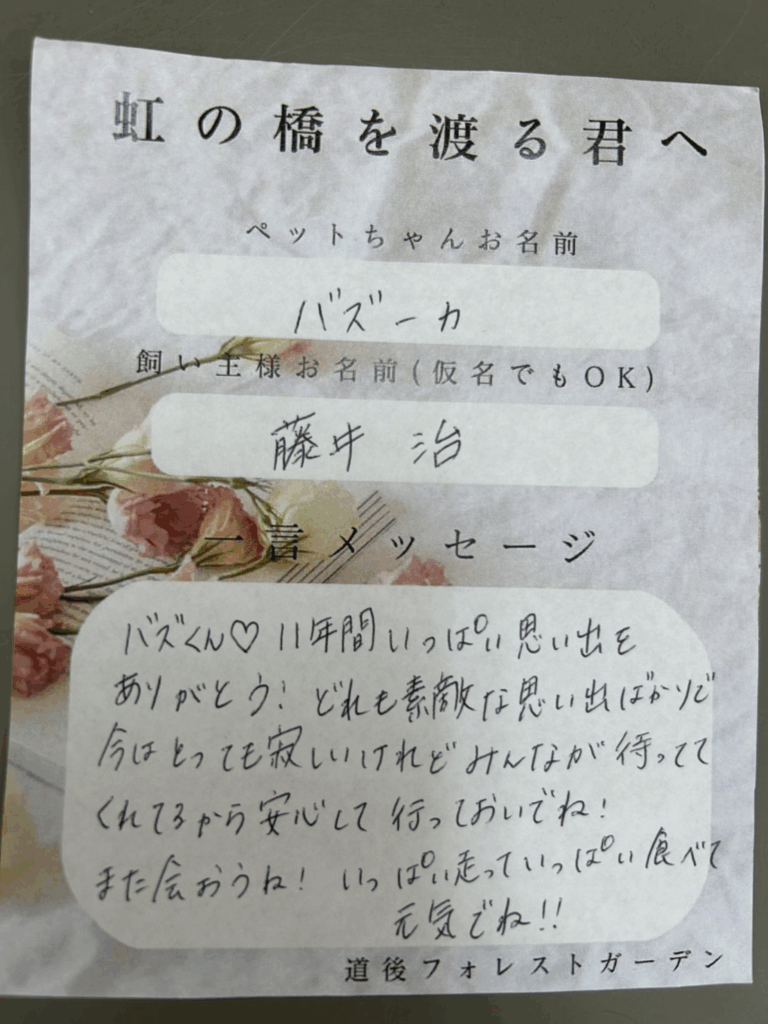 虹の橋を渡る君へ
ペットちゃんお名前
バズーカ
飼い主様お名前(仮名でもOK)
藤井 治
一言メッセージ
バズくん♡ 11年間いっぱい思い出を
ありがとう! どれも素敵な思い出ばかりで
今はとっても寂しいけれどみんなが待ってて
くれてるから安心して行っておいでね!
また会おうね! いっぱい走っていっぱい食べて
元気でね!!
道後フォレストガーデン